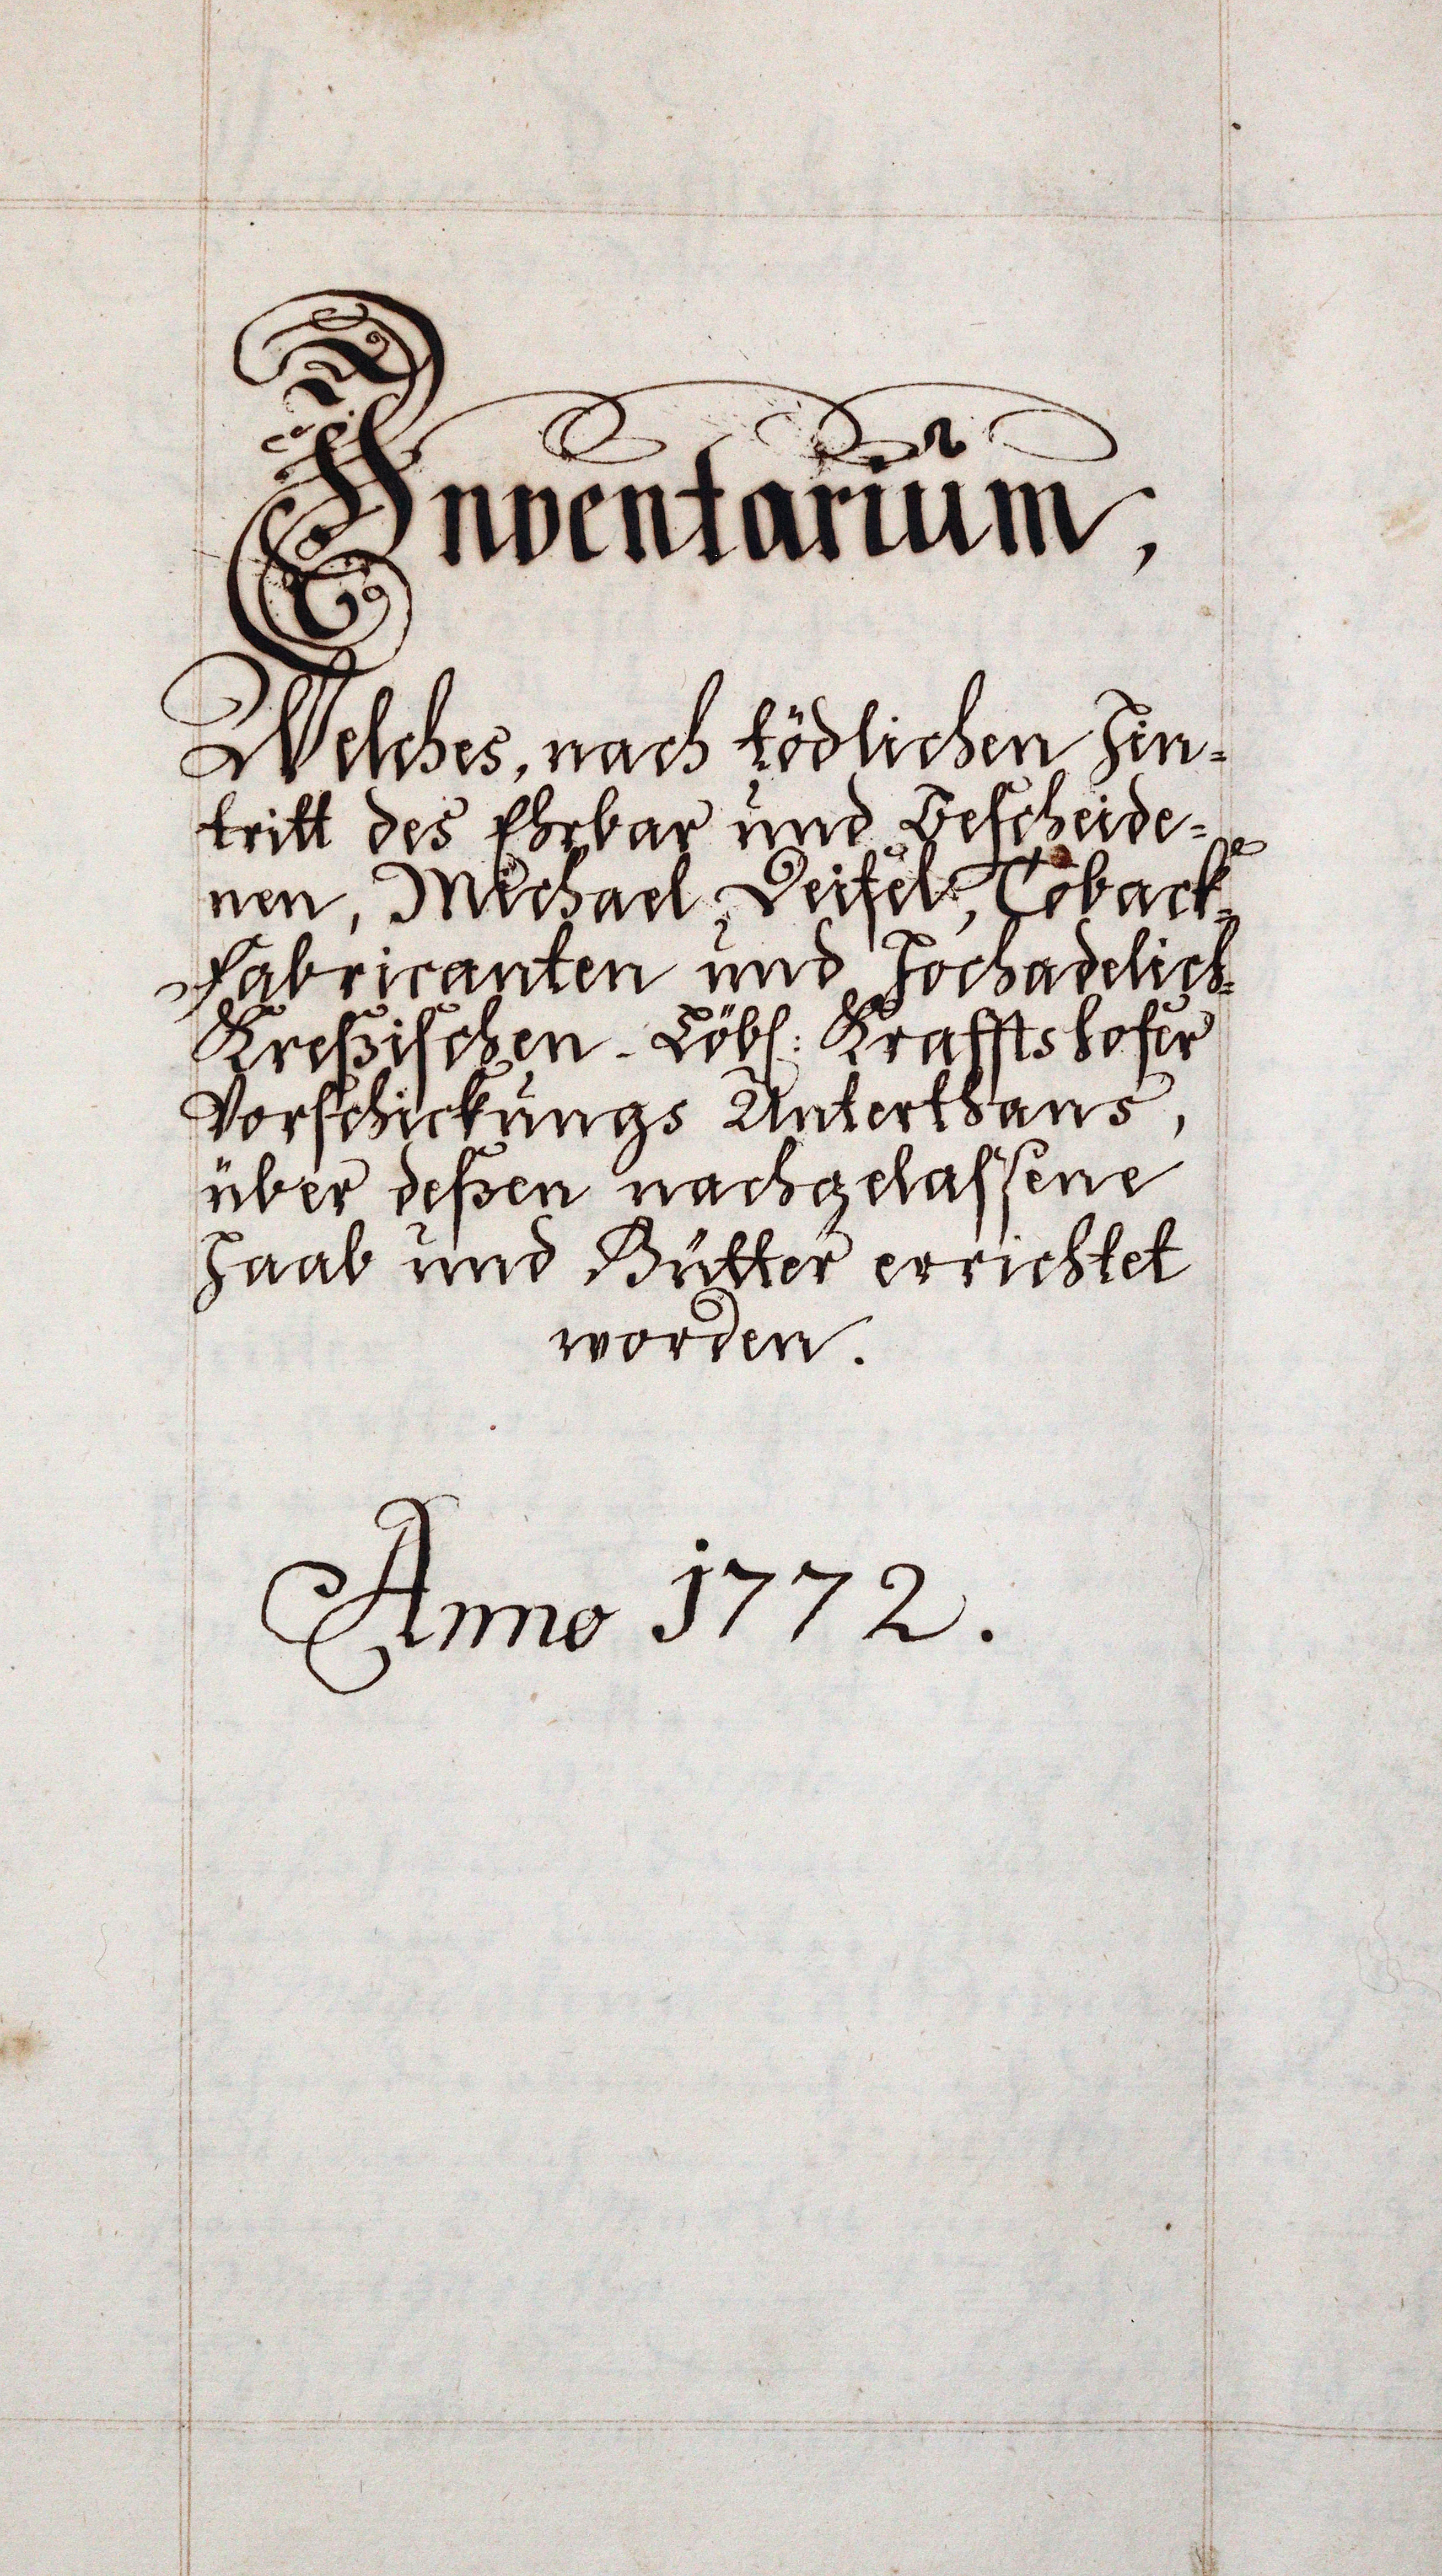 Inventarium,
Welches, nach tödlichen Hin=
tritt des Ehrbar und Bescheide=
nen, Michael Deisel, Toback=
Fabricanten und Hochadelich=
Kreßischen Löbl: Kraffts hofer
Vorschickungs Unterthans,
über deßen nachgelassene
Haab und Gütter errichtet
worden.
Anno 1772.